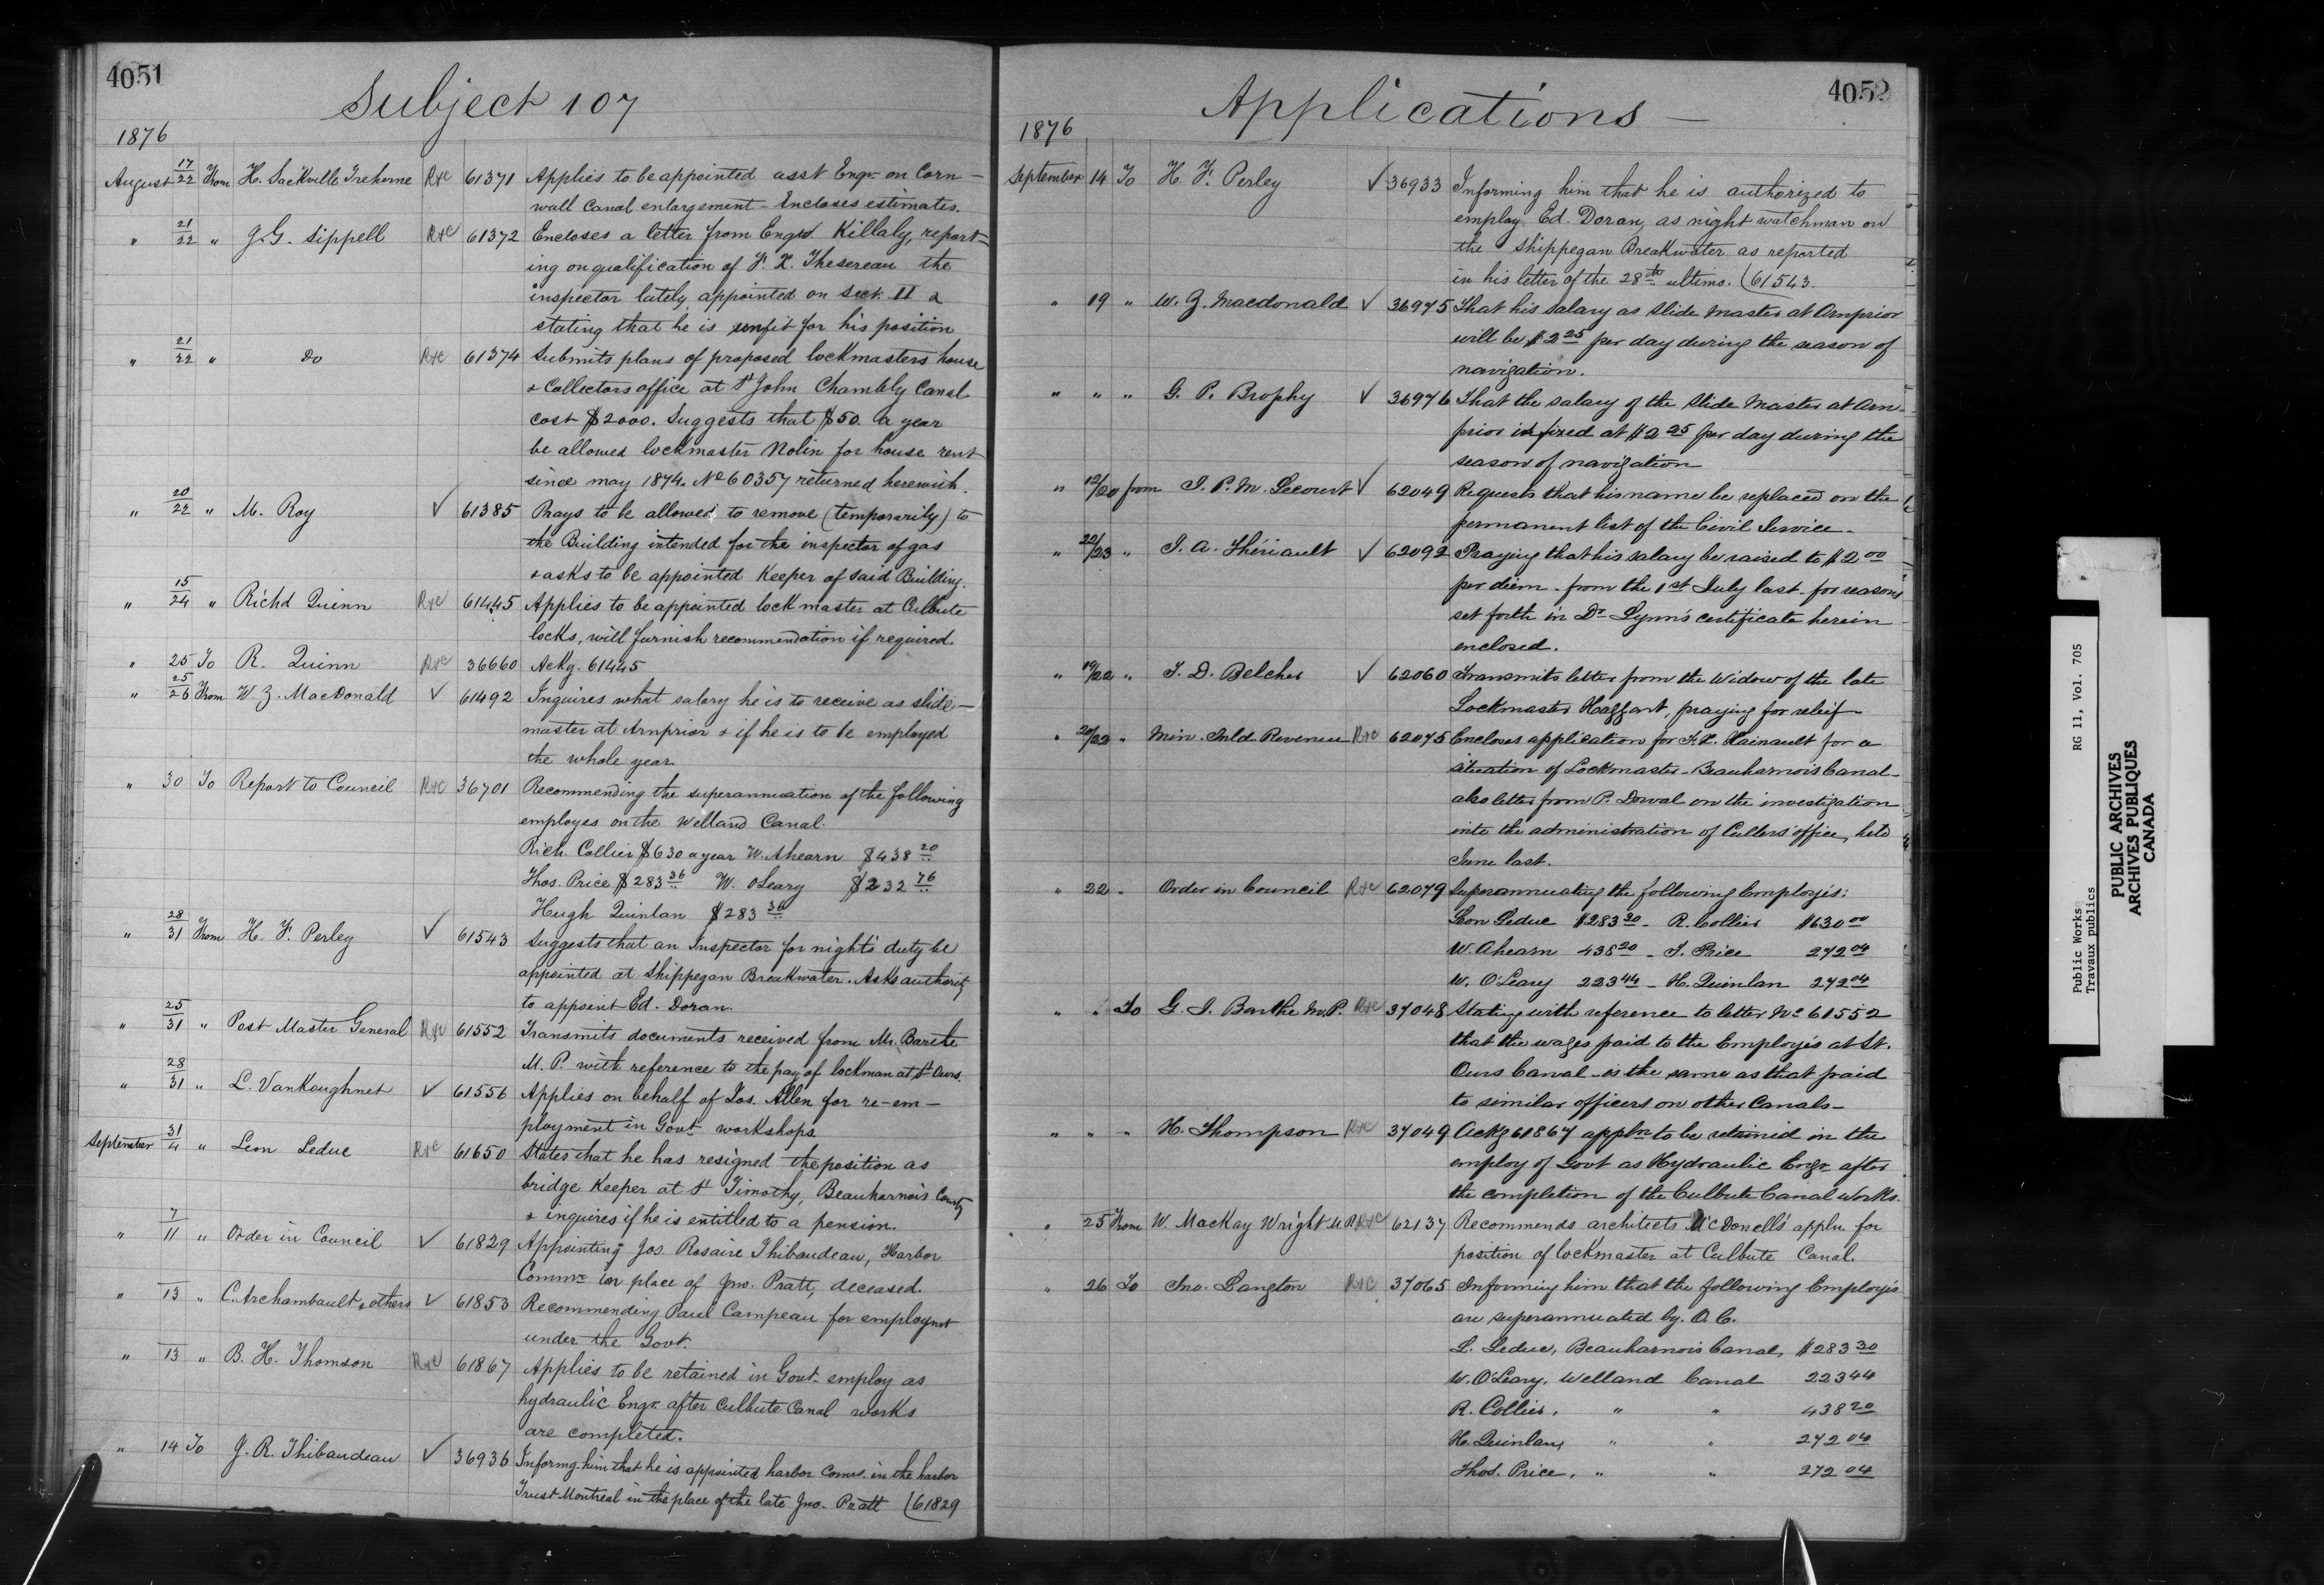 4051
Subject 107
1876
August 17/22 From H. Sackville Treherne R+C 61371 Applies to be appointed asst Engr. on Corn-
wall Canal enlargement - Encloses estimates.
" 21/22 " J.G. Sippell R+C 61372 Encloses a letter from Engr Killaly, report-
ing on qualification of F. X. Thesereau the
inspector lately appointed on Sect. 11 &
stating that he is unfit for his position
" 21/22 " Do R+C 61374 Submits plans of proposed lockmasters house
& Collectors office at St John Chambly Canal
cost $2000. Suggests that $50. a year
be allowed lockmaster Nolin for house rent
since may 1874. No 60357 returned herewith.
" 20/22 " M. Roy ✓ 61385 Prays to be allowed to remove (temporarily) to
the Building intended for the inspector of gas
& asks to be appointed Keeper of said Building.
" 15/24 " Richd Quinn R+C 61445 Applies to be appointed lock master at Culbute
locks, will furnish recommendation if required.
" 25 To R. Quinn R+C 36660 Ackg. 61445
" 25/26 From W. Z. MacDonald ✓ 61492 Inquires what salary he is to receive as slide-
master at Arnprior & if he is to be employed
the whole year
" 30 To Report to Council R+C 36701 Recommending the superannuation of the following
employes on the Welland Canal.
Rich. Collier $630 a year W. Ahearn $438 20
Thos. Price $283 36 W. OLeary $232 76
Hugh Quinlan $283 36
" 28/31 From H. F. Perley ✓ 61543 Suggests that an Inspector for night's duty be
appointed at Shippegan Breakwater. Asks authority
to appoint Ed. Doran.
" 25/31 " Post Master General R+C 61552 Transmits documents received from Mr. Barthe
M. P. with reference to the pay of lockman at St Ours.
" 28/31 " L. VanKoughnet ✓ 61556 Applies on behalf of Jos. Allen for re-em-
ployment in Govt workshops
September 31/4 " Leon Leduc R+C 61650 States that he has resigned the position as
bridge Keeper at St Timothy, Beauharnois County
& inquires if he is entitled to a pension.
" 7/11 " Order in Council ✓ 61829 Appointing Jos. Rosaire Thibaudeau, Harbor
Commr in place of Jno. Pratt, deceased.
" 13 " C. Archambault & others ✓ 61853 Recommending Paul Campeau for employmt
under the Govt.
" 13 " B. H. Thomson R+C 61867 Applies to be retained in Govt employ as
hydraulic Engr. after Culbute Canal works
are completed.
" 14 To J. R. Thibaudeau ✓ 36936 Informg him that he is appointed harbor Comr. in the harbor
Trust Montreal in the place of the late Jno. Pratt (61829
4052
Applications -
1876
September 14 To H. F. Perley ✓ 36933 Informing him that he is authorized to
employ Ed. Doran, as night watchman on
the Shippegan Breakwater as reported
in his letter of the 28th ultimo. (61543
" 19 " W. Z. Macdonald ✓ 36975 That his salary as Slide Master at Arnprior
will be $2 25 per day during the season of
navigation.
" " " G. P. Brophy ✓ 36976 That the salary of the Slide Master at Arn-
prior is fixed at $2 25 per day during the
season of navigation
" 12/20 from J. P. M. Lecourt ✓ 62049 Requests that his name be replaced on the
permanent list of the Civil Service -
" 22/23 " J. A. Thériault ✓ 62092 Praying that his salary be raised to $2 00
per diem - from the 1st July last - for reasons
set forth in Dr Lynn's certificate herein
enclosed.
" 19/22 " T. D. Belcher ✓ 62060 Transmits letter from the Widow of the late
Lockmaster Haggart, praying for relief -
" 20/22 " Min. Inld Revenue R+C 62075 Encloses application for F. X. Hainault for a
situation of Lockmaster - Beauharnois Canal -
also letter from P. Dorval on the investigation
into the administration of Cullers' office, held
June last.
" 22 - Order in Council R+C 62079 Superannuating the following Employés:
Leon Leduc $283 30 - R. Collier $630 00
W. Ahearn 438 20 - T. Price 272 04
W. O'Leary 223 44 - H. Quinlan 272 04
" " To G. I. Barthe M.P. R+C 37048 Stating with reference to letter No 61552
that the wages paid to the Employés at St.
Ours Canal - is the same as that paid
to similar officers on other Canals -
" " " H. Thompson R+C 37049 Ackg 61867 appln to be retained in the
employ of Govt as Hydraulic Engr. after
the completion of the Culbute Canal Works.
" 25 From W. MacKay Wright M.P. R+C 62137 Recommends architects McDonell's appln. for
position of lockmaster at Culbute Canal.
" 26 To Jno. Langton R+C 37065 Informing him that the following Employés
are superannuated by. O. C.
L. Leduc, Beauharnois Canal, $283 30
W. O'Leary, Welland Canal 223 44
R. Collier, " " 438 20
H. Quinlan, " " 272 04
Thos. Price, " " 272 04
Public Works RG 11, Vol. 705
Travaux publics
PUBLIC ARCHIVES
ARCHIVES PUBLIQUES
CANADA